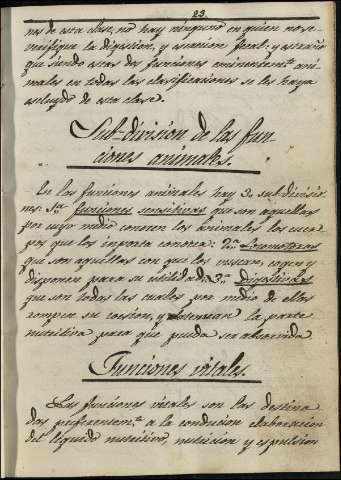 23.
nes de esta clase, no hay ninguno en quien no se
verifique la digestion, y escrecion fecal: y estraño
que siendo estas dos funciones eminentemte. ani-
males en todas las clasificaciones se les haya
escluido de esta clase.
Sub-division de las fun-
ciones animales.
En las funciones animales hay 3 subdivisio-
nes: 1a. funciones sensitivas que son aquellas
por cuyo medio conocen los animales los cuer-
pos que les importa conocer: 2a. Locomotoras
que son aquellas con que los buscan, cogen y
disponen para su utilidad: 3a. Digestivas
que son todas las cuales por medio de ellas
rompen su cohesion, y la parte
nutritiva para que pueda ser absorvida.
Funciones vitales.
Las funciones vitales son las destina-
das preferentemte. a la conducion elaboracion
del líquido nutritivo, nutricion y espulsion